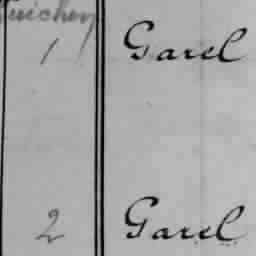 Guichen
1 Garel
2 Garel